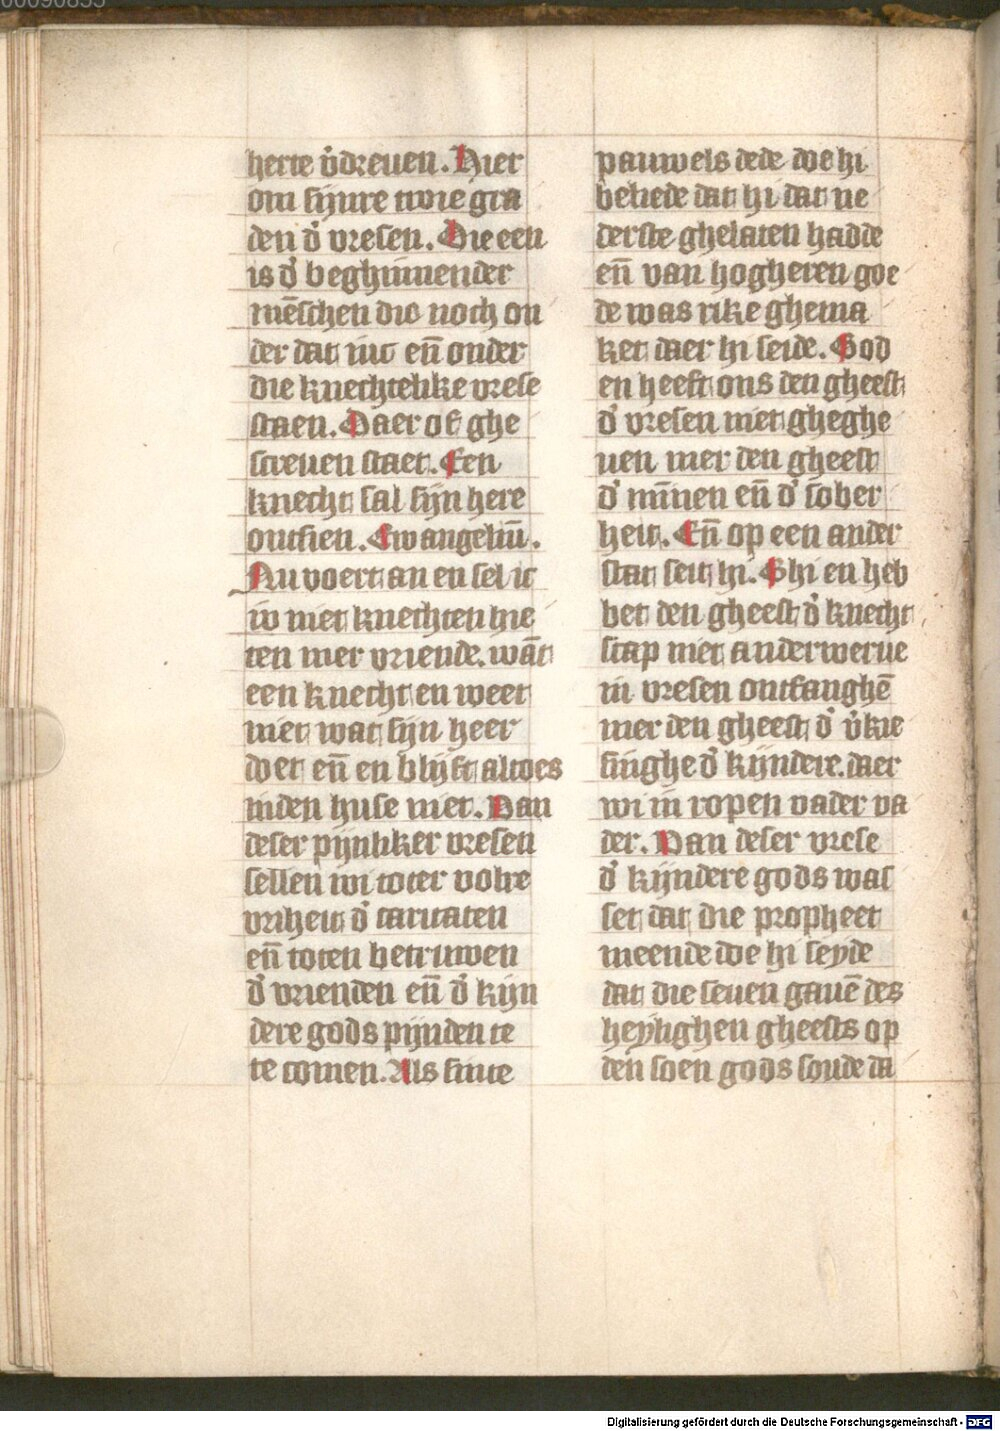 herte v̓dreuen. Hier
om sijnre twie gra
den d̓ vresen. Die een
is d̓ beghinnender
mēschen die noch on
der dat iuc en̄ onder
die knechtelike vrese
staen. Daer of ghe
screuen staet. Een
knecht sal sijn here
ontsien. Ewangeliū.
Nu voert an en sel ic
iv niet knechten hie
ten mer vriende. wāt
een knecht en weet
niet wat sijn heer
doet en̄ en blijft altoes
inden huse niet. Van
deser pijnliker vresen
sellen wi toter volre
vriheit d̓ caritaten
en̄ toten betruwen
d̓ vrienden en̄ d̓ kijn
dere gods pijnden te
te comen. Als sinte
pauwels dede doe hi
beliede dat hi dat ne
derste ghelaten hadde
en̄ van hogheren goe
de was rike ghema
ket daer hi seide. God
en heeft ons den gheest
d̓ vresen niet gheghe
uen mer den gheest
d̓ mīnen en̄ d̓ sober
heit. En̄ op een ander
stat seit hi. Ghi en heb
bet den gheest d̓ knecht
scap niet anderwerue
in vresen ontfanghē
mer den gheest d̓ v̓kie
singhe d̓ kijndere. daer
wi in ropen vader va
der. Van deser vrese
d̓ kijndere gods was
set dat die propheet
meende doe hi seyde
dat die seuen gauē des
heylighen gheests op
den soen gods soude da
Digitalisierung gefördert durch die Deutsche Forschungsgemeinschaft - DFG